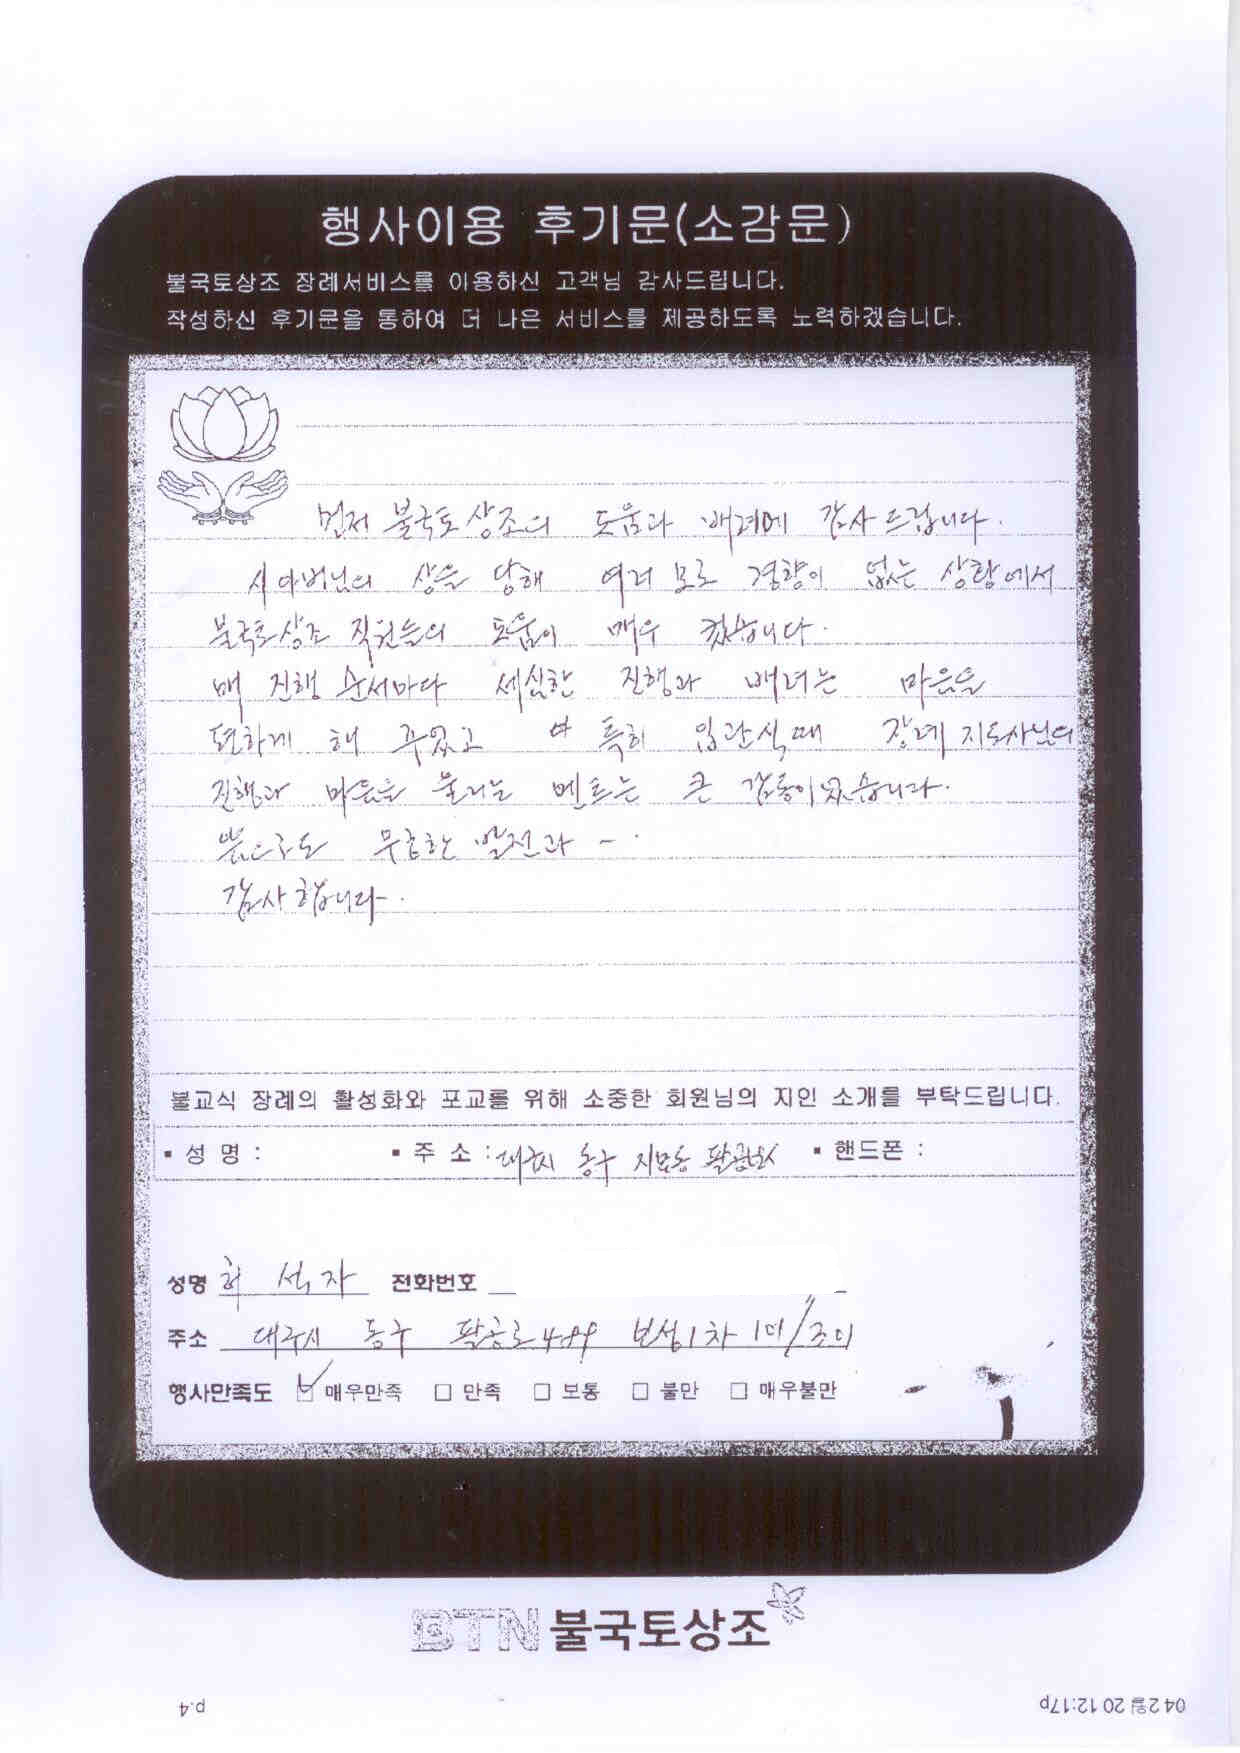 행사이용 후기문(소감문)
불국토상조 장례서비스를 이용하신 고객님 감사드립니다.
작성하신 후기문을 통하여 더 나은 서비스를 제공하도록 노력하겠습니다.
먼저 불국토상조의 도움과 배려에 감사드립니다.
시아버님의 상을 당해 여러 모로 경황이 없는 상황에서
불국토상조 직원들의 도움이 매우 컸습니다.
매 진행 순서마다 세심한 진행과 배려는 마음을
편하게 해 주었고 특히 입관식때 장례 지도사님의
진행과 마음을 울리는 멘트는 큰 감동이었습니다.
앞으로도 무궁한 발전과 - .
감사합니다.
불교식 장례의 활성화와 포교를 위해 소중한 회원님의 지인 소개를 부탁드립니다.
▪ 성 명 : ▪ 주 소 : 대구시 동구 지묘동 팔공로 ▪ 핸드폰 :
성명 허 석자 전화번호
주소 대구시 동구 팔공로 보성1차
행사만족도 ☑ 매우만족 □ 만족 □ 보통 □ 불만 □ 매우불만
BTN 불국토상조
p.4
04 2월 20 12:17p